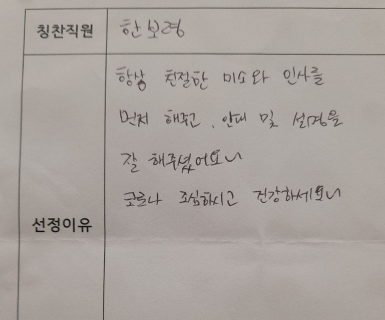 칭찬직원 한보령
항상 친절한 미소와 인사를
먼저 해주고, 안내 및 설명을
잘 해주셨어요~
코로나 조심하시고 건강하세요~
선정이유